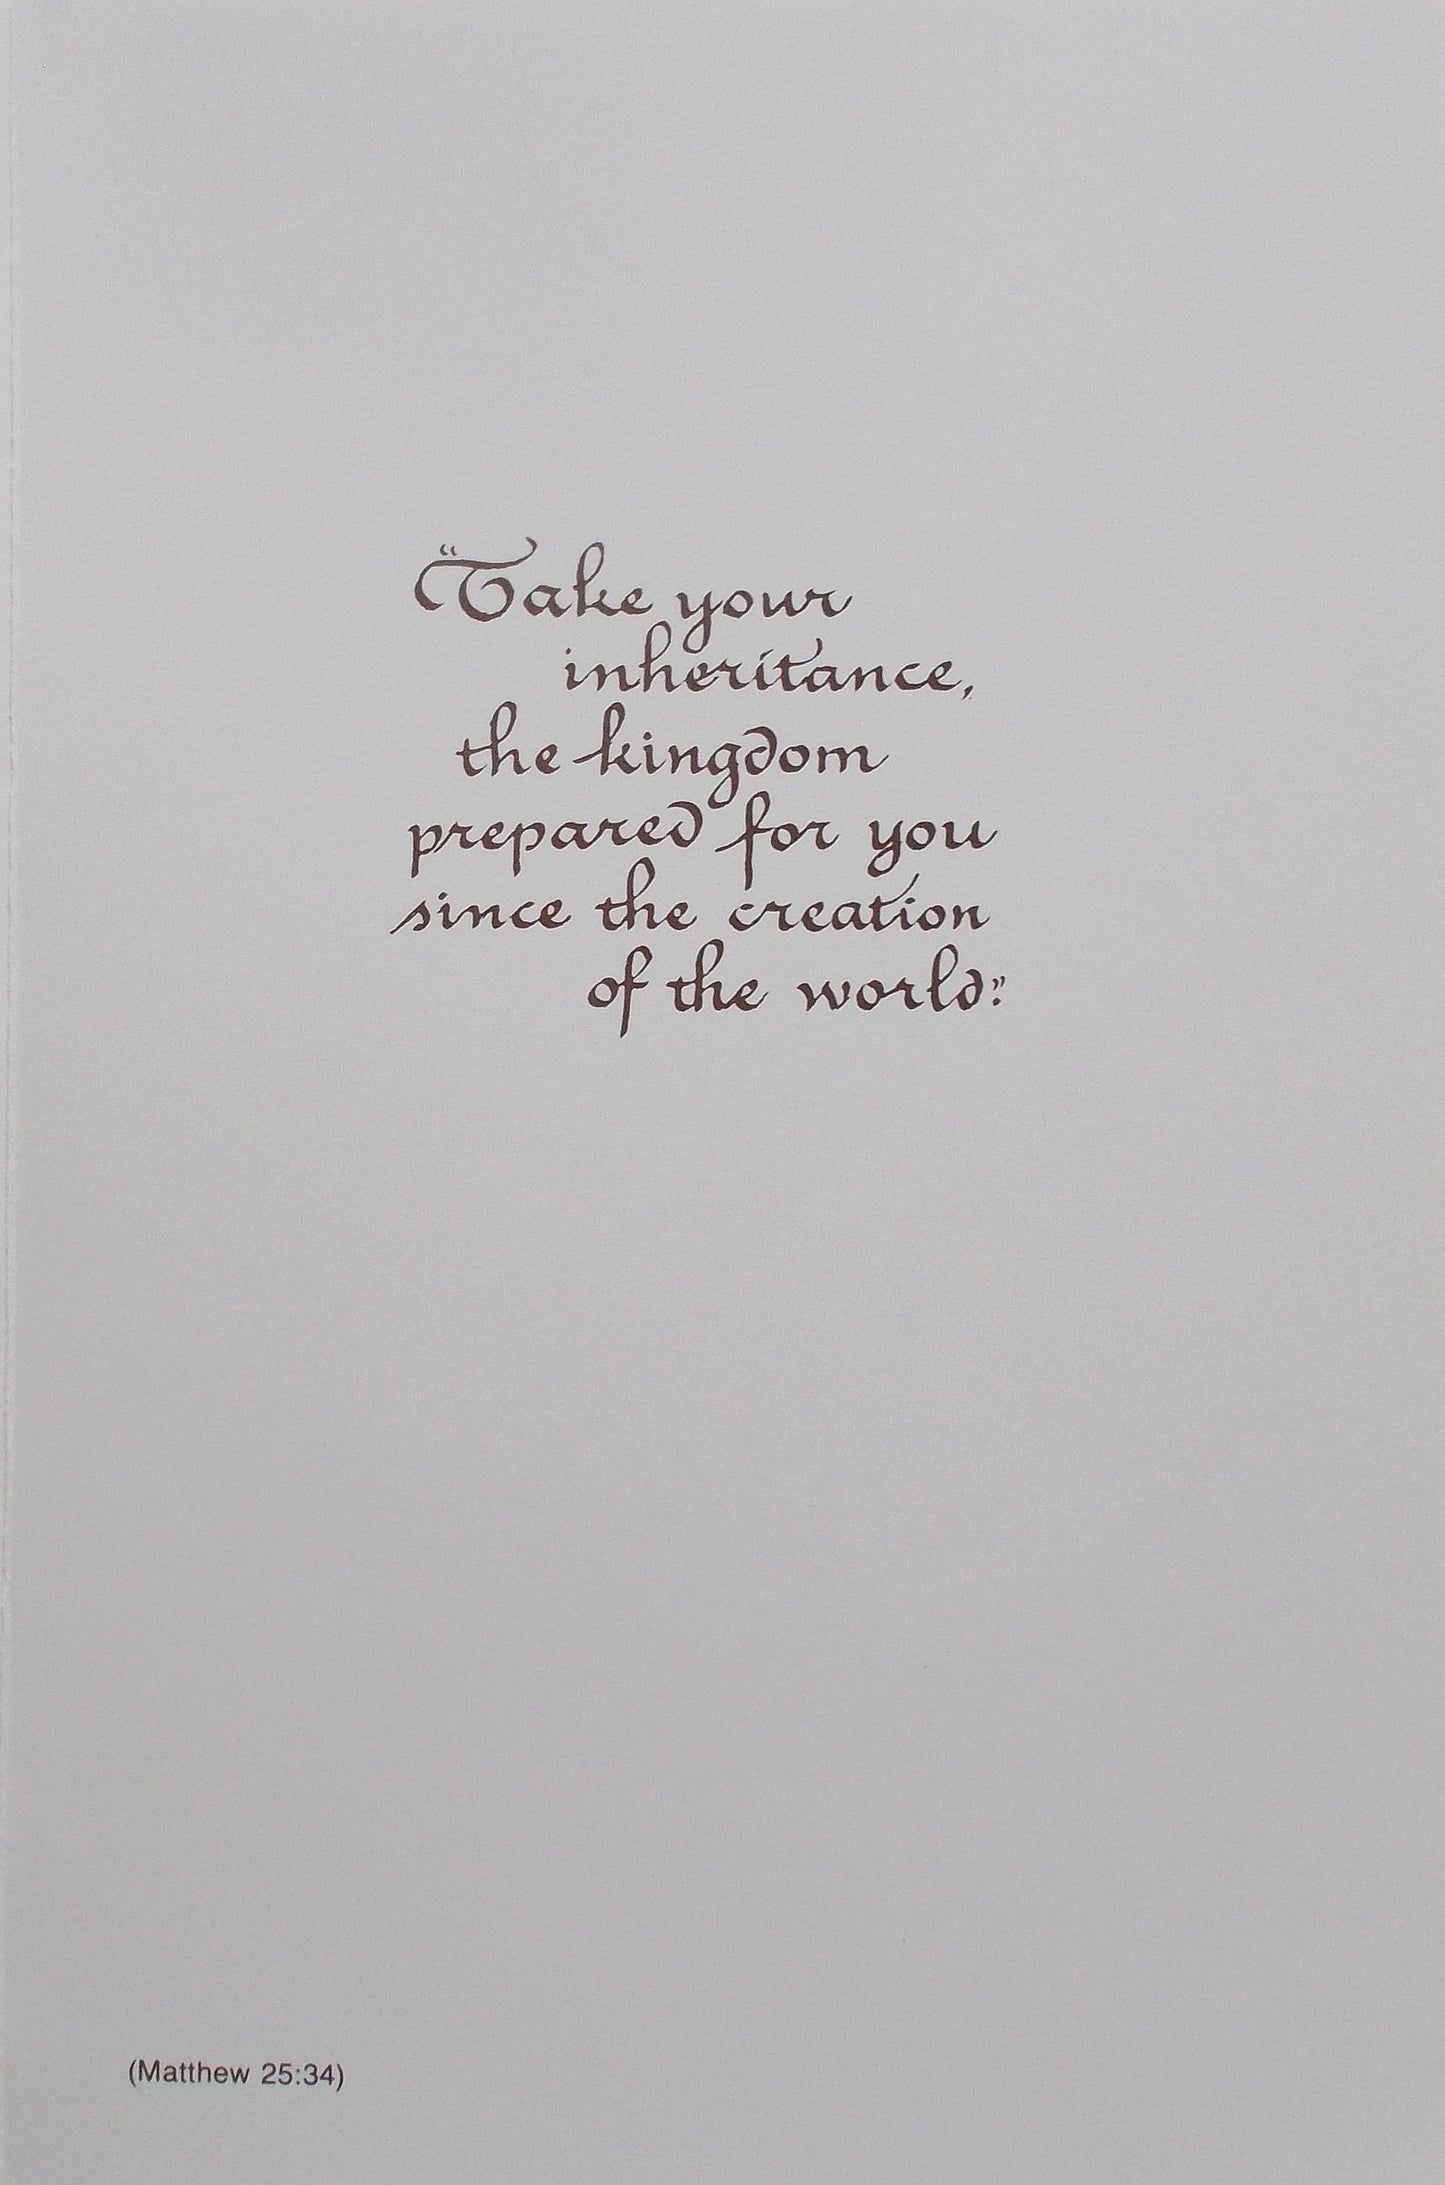 “Take your
inheritance,
the kingdom
prepared for you
since the creation
of the world.”
(Matthew 25:34)